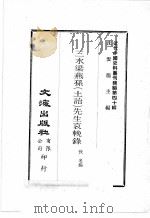 近代中國史料叢刊續編第四十輯
沈雲龍主編
三水梁燕孫(士詒)先生哀輓錄
佚名編
文海出版社
有限公司
印行